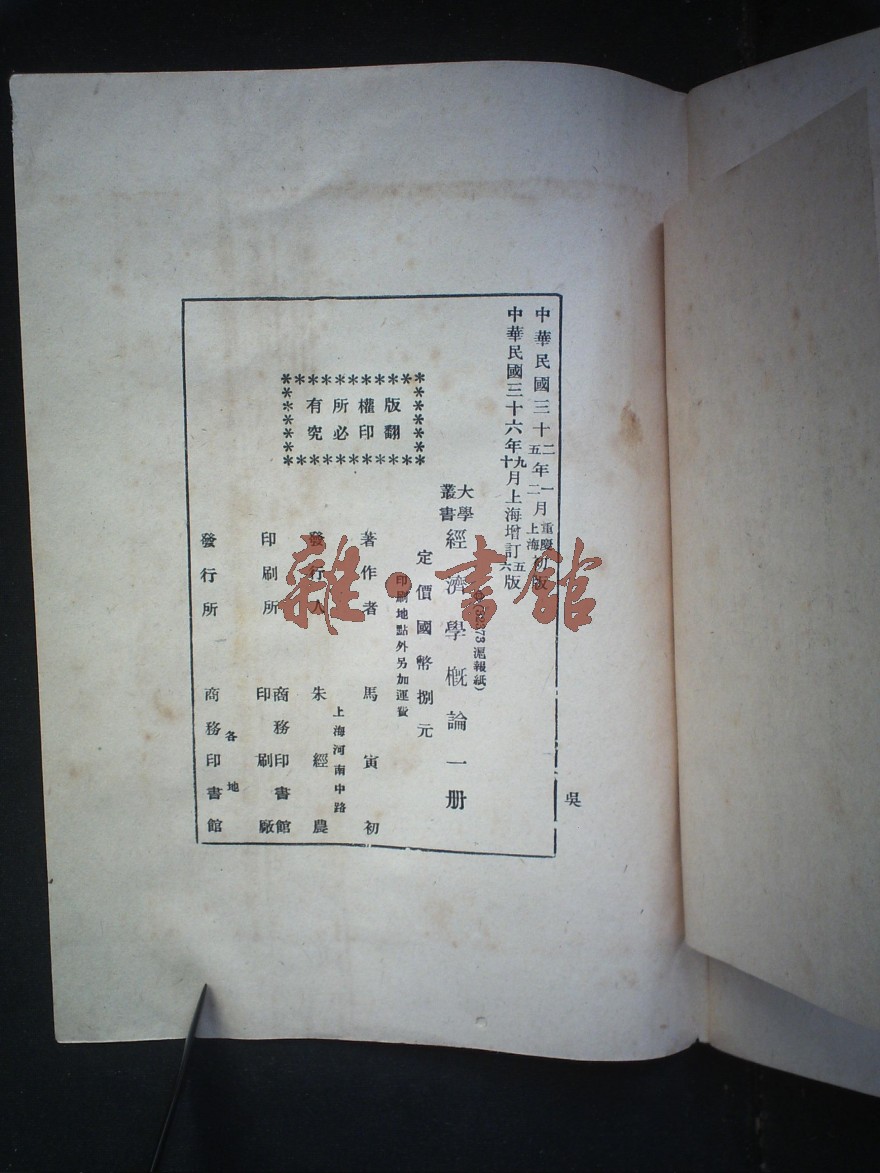 中華民國三十二年一月重慶初版
五 二 上海
中華民國三十六年九月上海增訂五版
十 六
大學
叢書
經濟學概論一册
32373滬報紙)
定價國幣捌元
印刷地點外另加運費
版權所有
翻印必究
著作者 馬寅初
上海河南中路
發行人 朱經農
印刷所 商務印書館
印刷廠
各地
發行所 商務印書館
吳
雜·書館